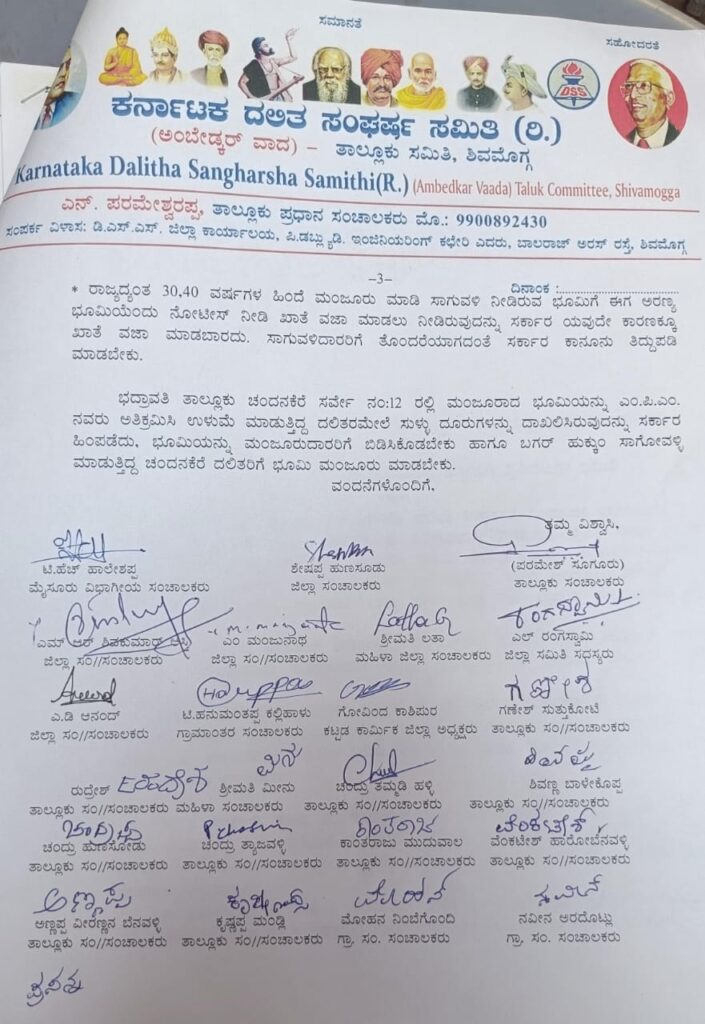 ಸಮಾನತೆ
ಸಹೋದರತೆ
DSS
ಕರ್ನಾಟಕ ದಲಿತ ಸಂಘರ್ಷ ಸಮಿತಿ (ರಿ.)
(ಅಂಬೇಡ್ಕರ್ ವಾದ) – ತಾಲ್ಲೂಕು ಸಮಿತಿ, ಶಿವಮೊಗ್ಗ
Karnataka Dalitha Sangharsha Samithi(R.) (Ambedkar Vaada) Taluk Committee, Shivamogga
ಎನ್. ಪರಮೇಶ್ವರಪ್ಪ, ತಾಲ್ಲೂಕು ಪ್ರಧಾನ ಸಂಚಾಲಕರು ಮೊ.: 9900892430
ಸಂಪರ್ಕ ವಿಳಾಸ: ಡಿ.ಎಸ್.ಎಸ್. ಜಿಲ್ಲಾ ಕಾರ್ಯಾಲಯ, ಪಿ.ಡಬ್ಲ್ಯುಡಿ. ಇಂಜಿನಿಯರಿಂಗ್ ಕಛೇರಿ ಎದುರು, ಬಾಲರಾಜ್ ಅರಸ್ ರಸ್ತೆ, ಶಿವಮೊಗ್ಗ
–3–
ದಿನಾಂಕ :..............................
* ರಾಜ್ಯದ್ಯಂತ 30,40 ವರ್ಷಗಳ ಹಿಂದೆ ಮಂಜೂರು ಮಾಡಿ ಸಾಗುವಳಿ ನೀಡಿರುವ ಭೂಮಿಗೆ ಈಗ ಅರಣ್ಯ
ಭೂಮಿಯೆಂದು ನೋಟೀಸ್ ನೀಡಿ ಖಾತೆ ವಜಾ ಮಾಡಲು ನೀಡಿರುವುದನ್ನು ಸರ್ಕಾರ ಯವುದೇ ಕಾರಣಕ್ಕೂ
ಖಾತೆ ವಜಾ ಮಾಡಬಾರದು. ಸಾಗುವಳಿದಾರರಿಗೆ ತೊಂದರೆಯಾಗದಂತೆ ಸರ್ಕಾರ ಕಾನೂನು ತಿದ್ದುಪಡಿ
ಮಾಡಬೇಕು.
ಭದ್ರಾವತಿ ತಾಲ್ಲೂಕು ಚಂದನಕೆರೆ ಸರ್ವೇ ನಂ:12 ರಲ್ಲಿ ಮಂಜೂರಾದ ಭೂಮಿಯನ್ನು ಎಂ.ಪಿ.ಎಂ.
ನವರು ಅತಿಕ್ರಮಿಸಿ ಉಳುಮೆ ಮಾಡುತ್ತಿದ್ದ ದಲಿತರಮೇಲೆ ಸುಳ್ಳು ದೂರುಗಳನ್ನು ದಾಖಲಿಸಿರುವುದನ್ನು ಸರ್ಕಾರ
ಹಿಂಪಡೆದು, ಭೂಮಿಯನ್ನು ಮಂಜುರುದಾರರಿಗೆ ಬಿಡಿಸಿಕೊಡಬೇಕು ಹಾಗೂ ಬಗರ್ ಹುಕ್ಕುಂ ಸಾಗೋವಳ್ಳಿ
ಮಾಡುತ್ತಿದ್ದ ಚಂದನಕೆರೆ ದಲಿತರಿಗೆ ಭೂಮಿ ಮಂಜೂರು ಮಾಡಬೇಕು.
ವಂದನೆಗಳೊಂದಿಗೆ,
ತಮ್ಮ ವಿಶ್ವಾಸಿ,
ಟಿ.ಹೆಚ್ ಹಾಲೇಶಪ್ಪ ಶೇಷಪ್ಪ ಹುಣಸೂಡು (ಪರಮೇಶ್ ಸೂಗೂರು)
ಮೈಸೂರು ವಿಭಾಗೀಯ ಸಂಚಾಲಕರು ಜಿಲ್ಲಾ ಸಂಚಾಲಕರು ತಾಲ್ಲೂಕು ಸಂಚಾಲಕರು
ರಂಗಸ್ವಾಮಿ
ಎಮ್ ಆರ್ ಶಿವಕುಮಾರ್ ಎಂ ಮಂಜುನಾಥ ಶ್ರೀಮತಿ ಲತಾ ಎಲ್ ರಂಗಸ್ವಾಮಿ
ಜಿಲ್ಲಾ ಸಂ//ಸಂಚಾಲಕರು ಜಿಲ್ಲಾ ಸಂ//ಸಂಚಾಲಕರು ಮಹಿಳಾ ಜಿಲ್ಲಾ ಸಂಚಾಲಕರು ಜಿಲ್ಲಾ ಸಮಿತಿ ಸದಸ್ಯರು
ಗಣೇಶ
ಎ.ಡಿ ಆನಂದ್ ಟಿ.ಹನುಮಂತಪ್ಪ ಕಲ್ಲಿಹಾಳು ಗೋವಿಂದ ಕಾಶಿಪುರ ಗಣೇಶ್ ಸುತ್ತುಕೋಟೆ
ಜಿಲ್ಲಾ ಸಂ//ಸಂಚಾಲಕರು ಗ್ರಾಮಾಂತರ ಸಂಚಾಲಕರು ಕಟ್ಟಡ ಕಾರ್ಮಿಕ ಜಿಲ್ಲಾ ಅಧ್ಯಕ್ಷರು ತಾಲ್ಲೂಕು ಸಂ//ಸಂಚಾಲಕರು
ರುದ್ರೇಶ್ ಶ್ರೀಮತಿ ಮೀನು ಚಂದ್ರು ತಮ್ಮಡಿ ಹಳ್ಳಿ ಶಿವಣ್ಣ ಬಾಳೇಕೊಪ್ಪ
ತಾಲ್ಲೂಕು ಸಂ//ಸಂಚಾಲಕರು ಮಹಿಳಾ ಸಂ//ಸಂಚಾಲಕರು ತಾಲ್ಲೂಕು ಸಂ//ಸಂಚಾಲಕರು ತಾಲ್ಲೂಕು ಸಂ//ಸಂಚಾಲಕರು
ಕಾಂತರಾಜ ವೆಂಕಟೇಶ್
ಚಂದ್ರು ಹುಣಸೋಡು ಚಂದ್ರು ತ್ಯಾಜವಳ್ಳಿ ಕಾಂತರಾಜು ಮುದುವಾಲ ವೆಂಕಟೇಶ ಹಾರೋಬೆನವಳ್ಳಿ
ತಾಲ್ಲೂಕು ಸಂ//ಸಂಚಾಲಕರು ತಾಲ್ಲೂಕು ಸಂ//ಸಂಚಾಲಕರು ತಾಲ್ಲೂಕು ಸಂ//ಸಂಚಾಲಕರು ತಾಲ್ಲೂಕು ಸಂ//ಸಂಚಾಲಕರು
ಅಣ್ಣಪ್ಪ ಮೋಹನ ನವೀನ
ಅಣ್ಣಪ್ಪ ವೀರಣ್ಣನ ಬೆನವಳ್ಳಿ ಕೃಷ್ಣಪ್ಪ ಮಂಡ್ಲಿ ಮೋಹನ ನಿಂಬೆಗೊಂದಿ ನವೀನ ಅರದೊಟ್ಲು
ತಾಲ್ಲೂಕು ಸಂ//ಸಂಚಾಲಕರು ತಾಲ್ಲೂಕು ಸಂ//ಸಂಚಾಲಕರು ಗ್ರಾ. ಸಂ. ಸಂಚಾಲಕರು ಗ್ರಾ. ಸಂ. ಸಂಚಾಲಕರು
ಪ್ರಸನ್ನ